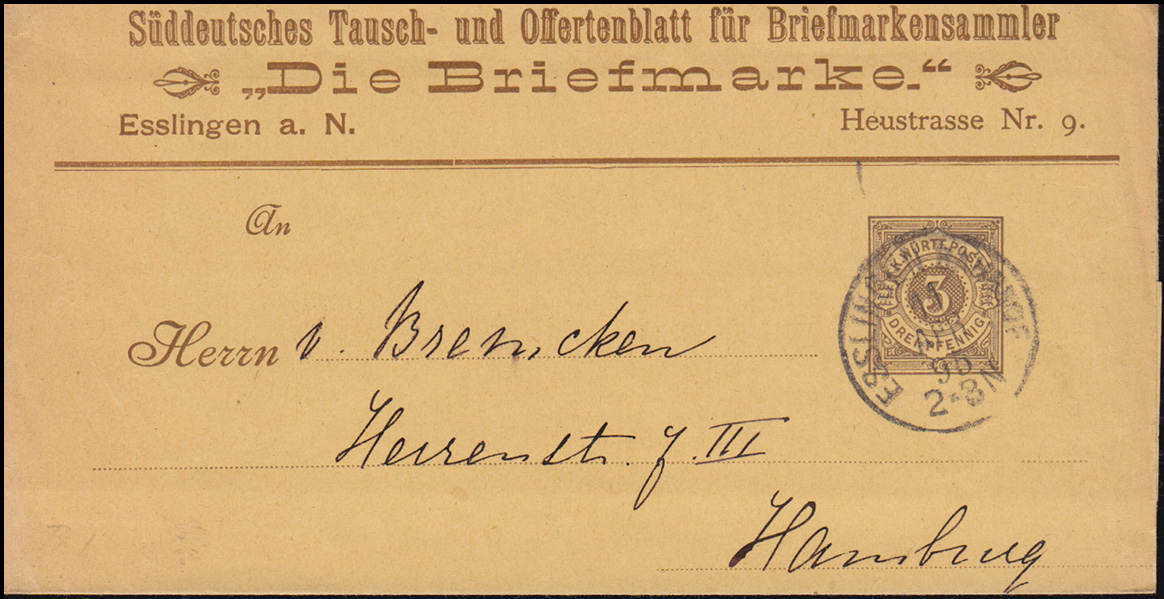 Süddeutsches Tausch- und Offertenblatt für Briefmarkensammler
„Die Briefmarke.“
Esslingen a. N.
Heustrasse Nr. 9.
An
K. WÜRTT. POST
3
DREI PFENNIG
ESSLINGEN
90
2-3N
Herrn v. Bremcken
Herrenstr. 7 III
Hamburg